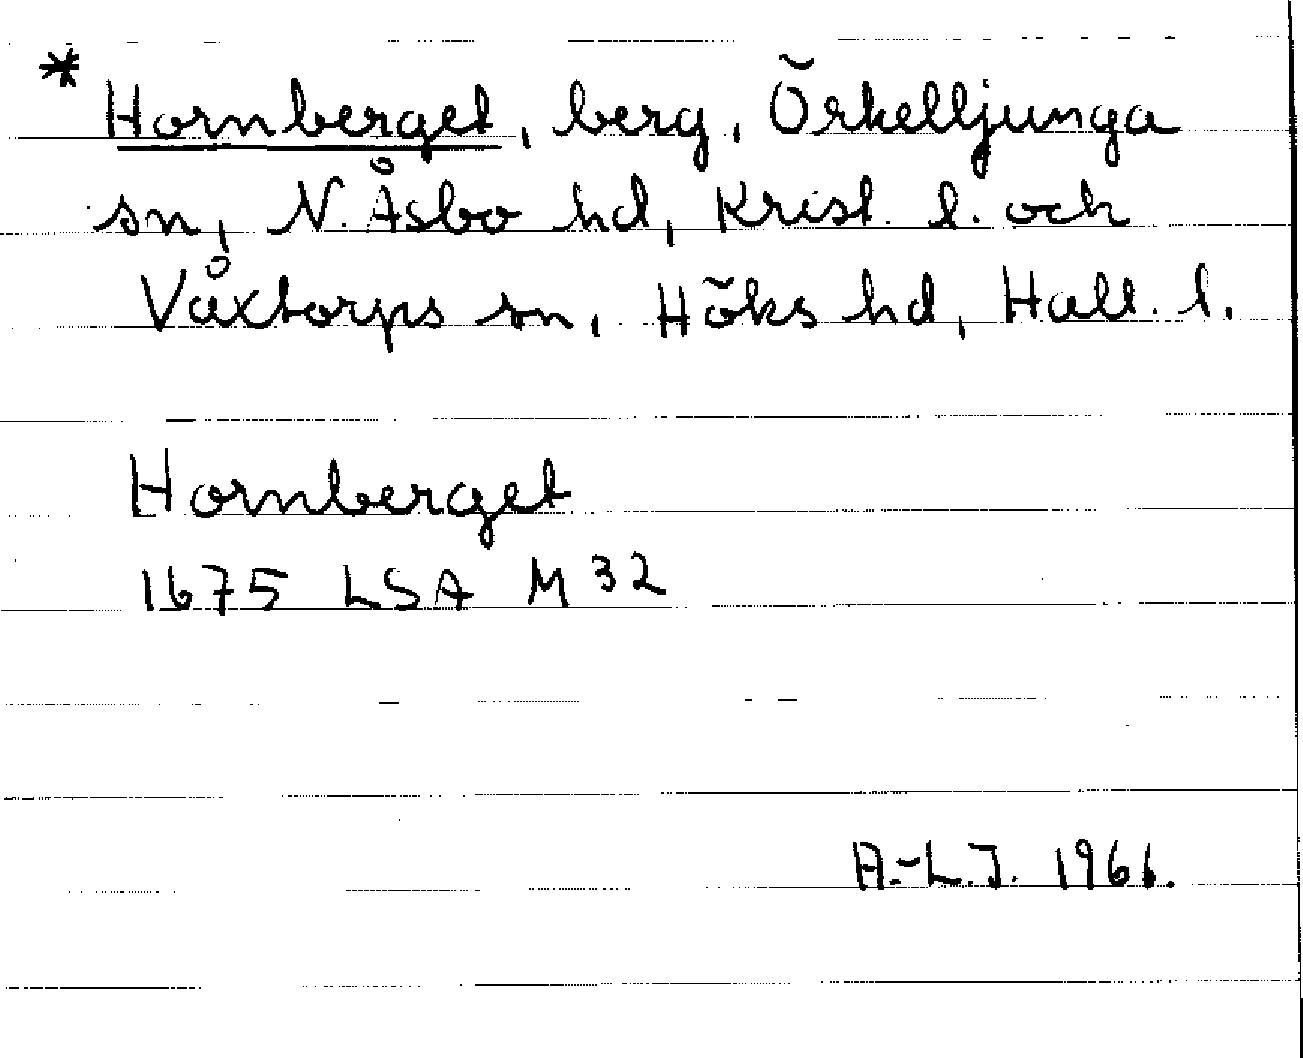 * Hornberget, berg, Örkelljunga
sn, N. Åsbo hd, Krist. l. och
Våxtorps sn, Höks hd, Hall. l.
Hornberget
1675 LSA M 32
A.-L.J. 1966.